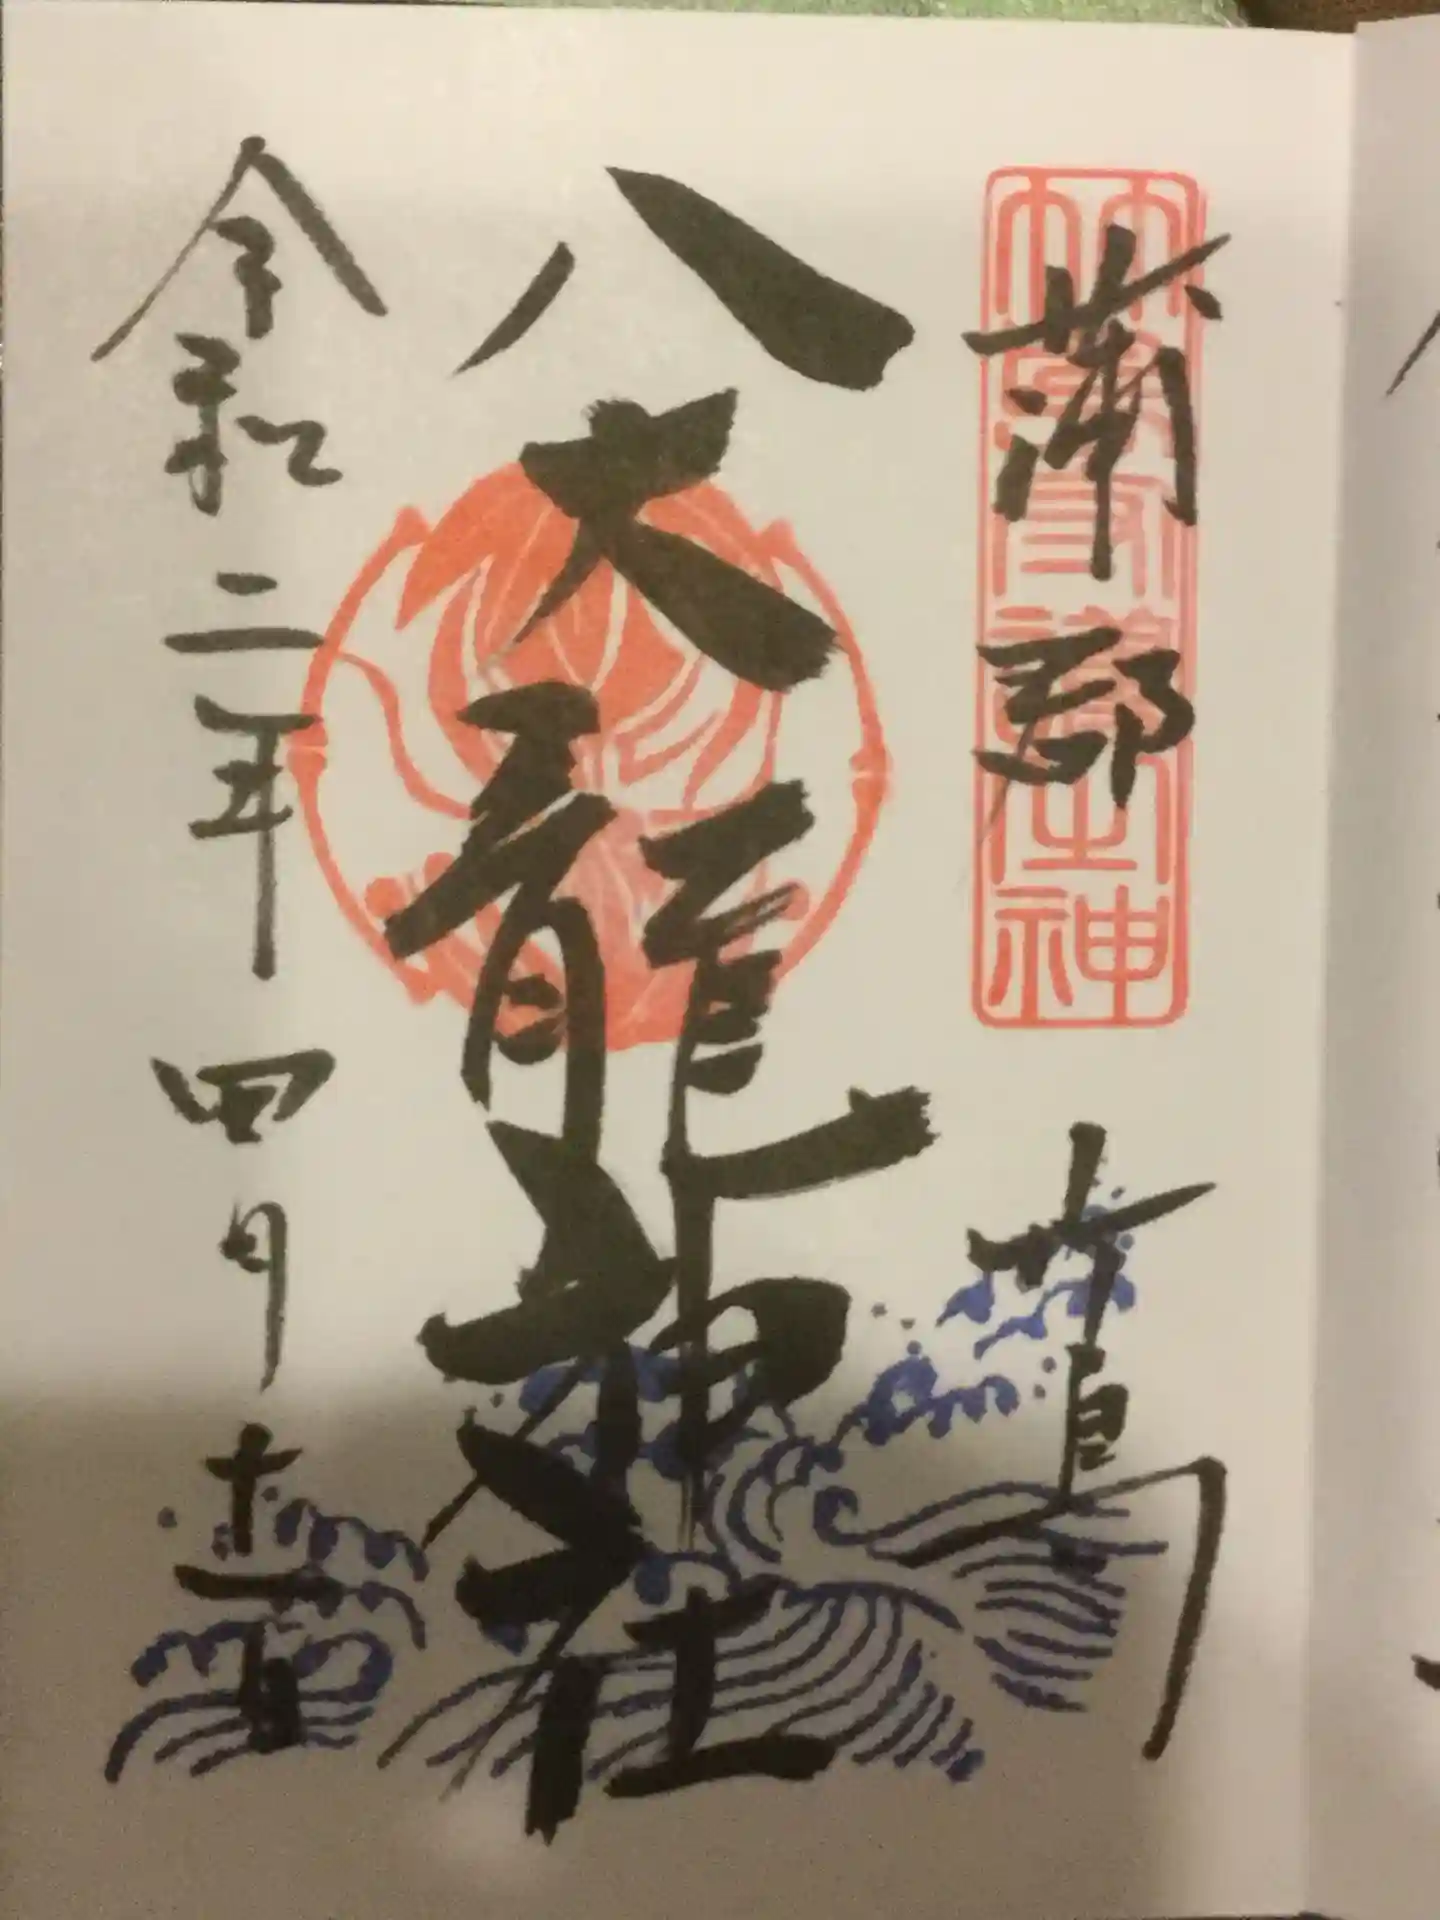 蒲郡 竹島
八大龍神社
令和二年四月十一日